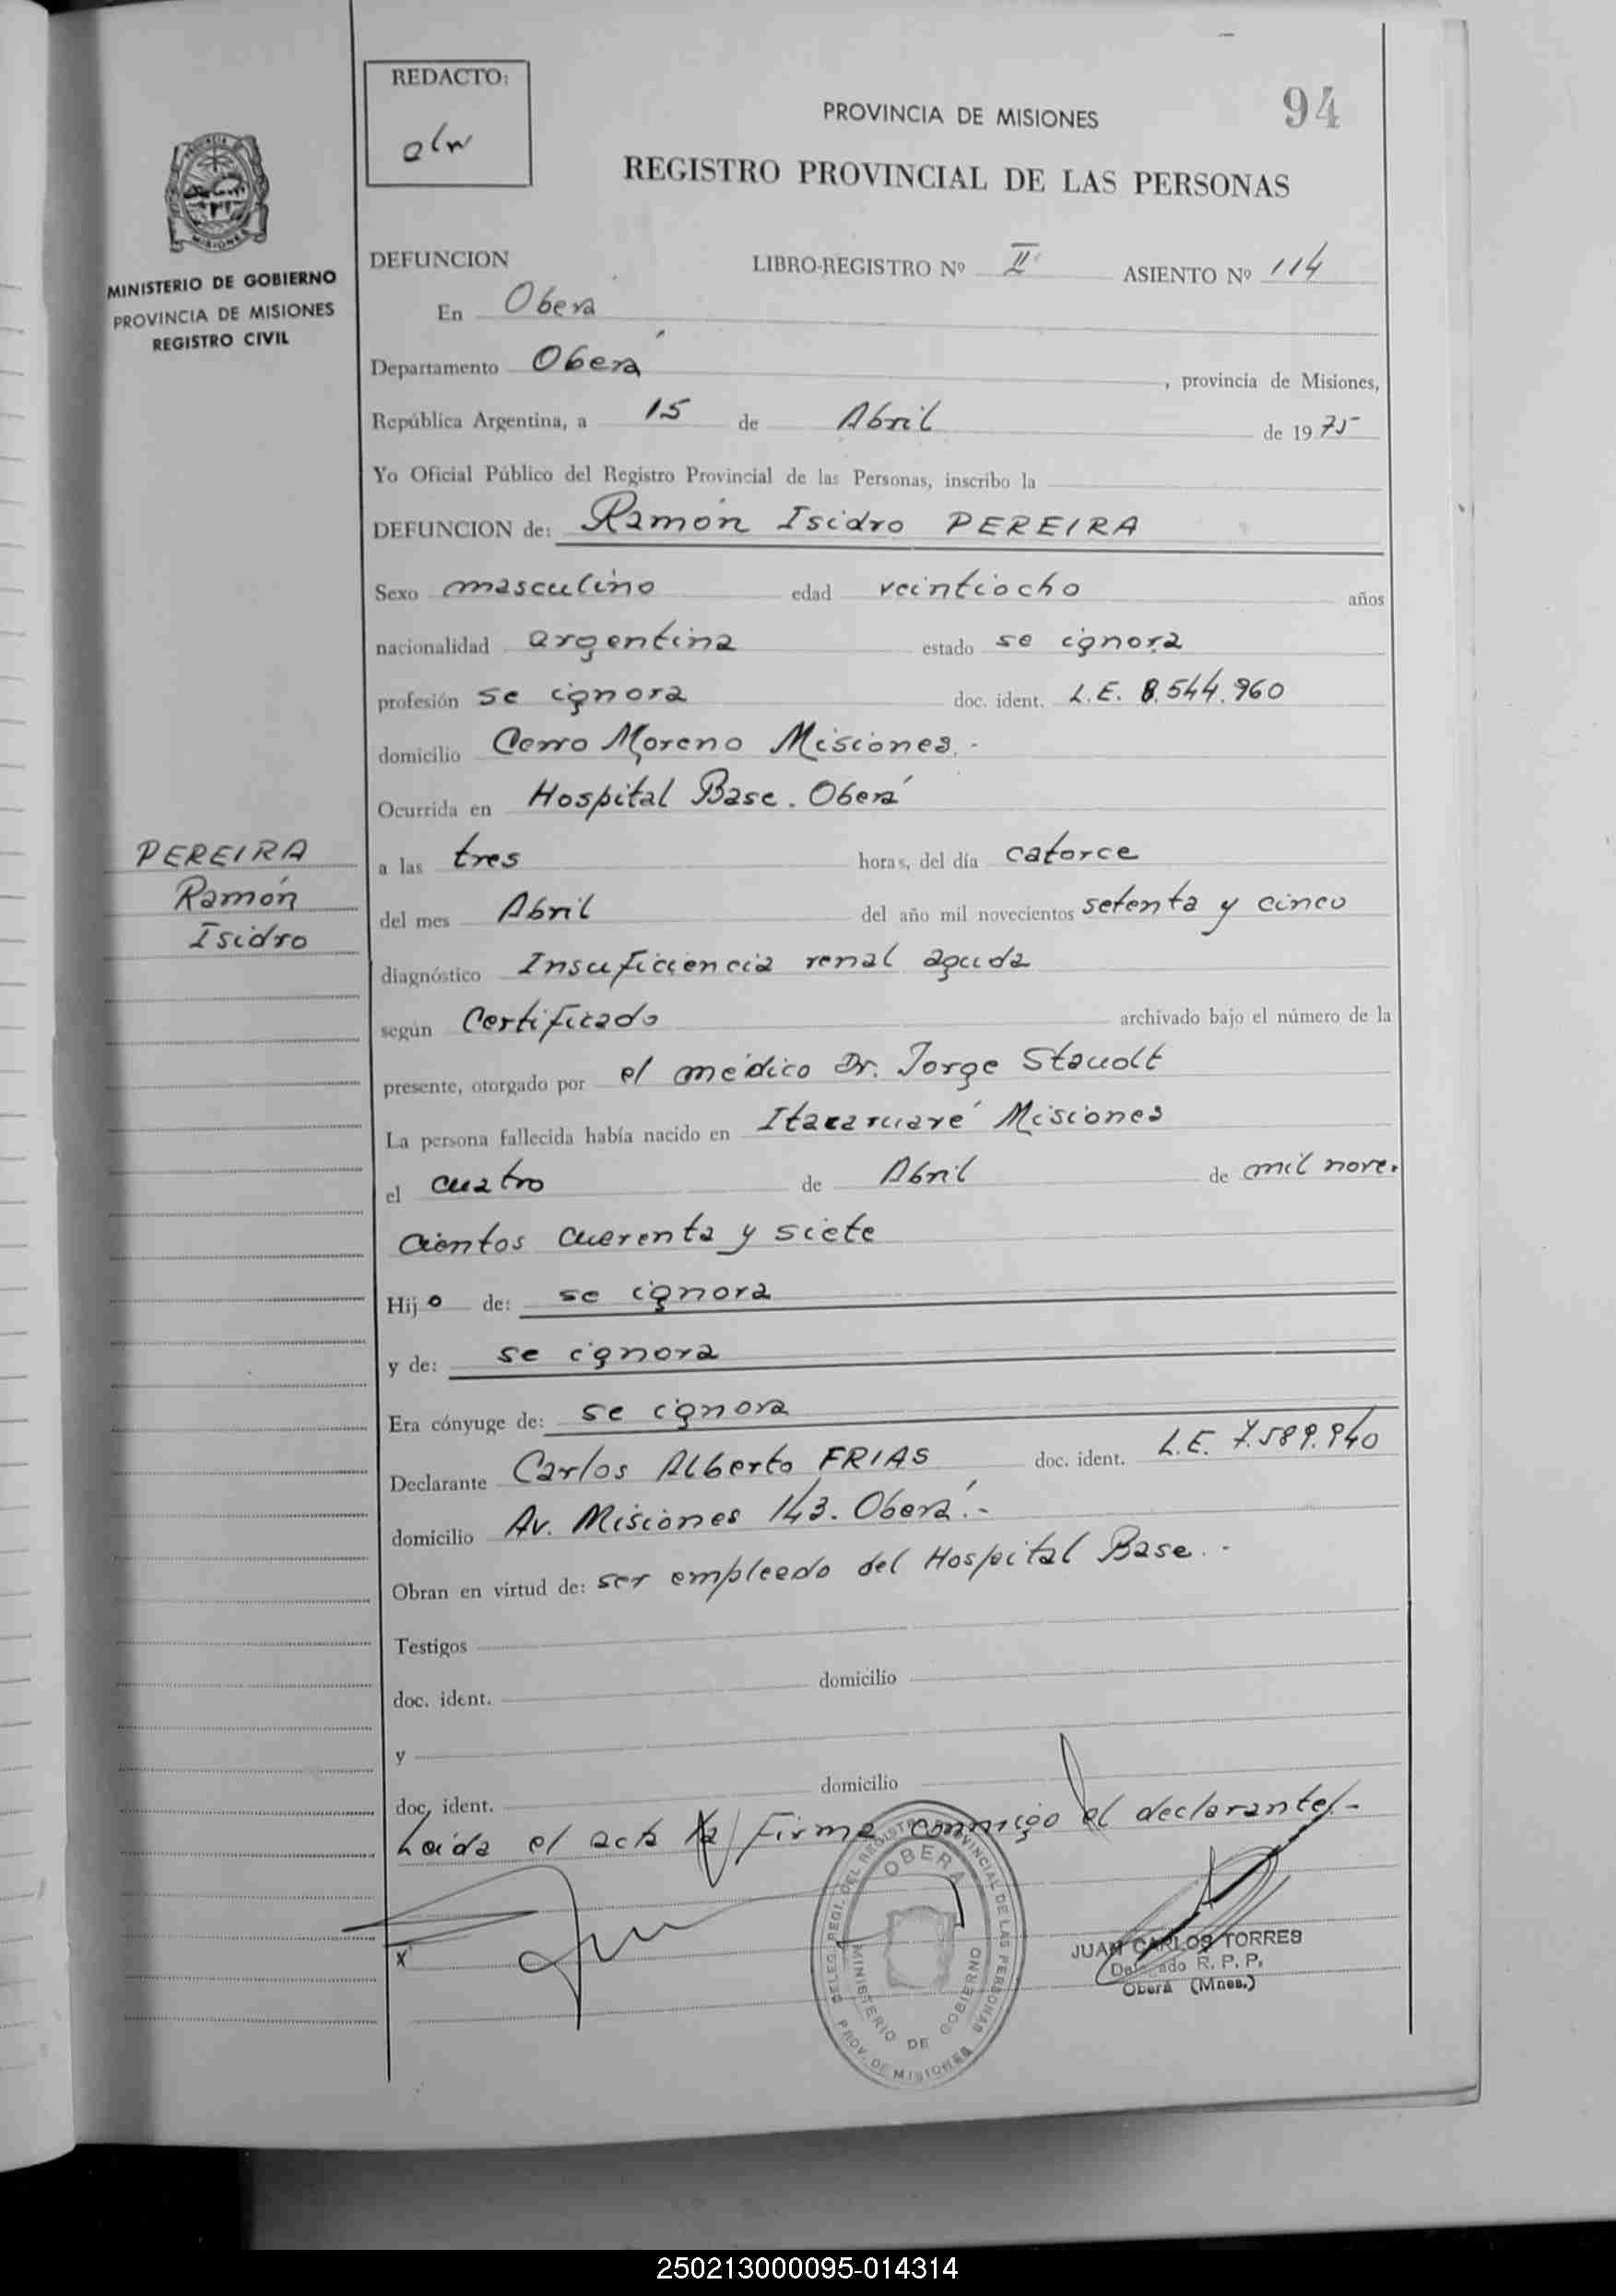 REDACTO:
alw
PROVINCIA DE MISIONES
94
REGISTRO PROVINCIAL DE LAS PERSONAS
PROVINCIA DE
MISIONES
MINISTERIO DE GOBIERNO
PROVINCIA DE MISIONES
REGISTRO CIVIL
DEFUNCION LIBRO-REGISTRO Nº II ASIENTO Nº 114
En Oberá
Departamento Oberá, provincia de Misiones,
República Argentina, a 15 de Abril de 1975
Yo Oficial Público del Registro Provincial de las Personas, inscribo la
DEFUNCION de: Ramón Isidro PEREIRA
Sexo masculino edad veintiocho años
nacionalidad argentina estado se ignora
profesión se ignora doc. ident. L.E. 8.544.960
domicilio Cerro Moreno Misiones.-
Ocurrida en Hospital Base. Oberá
PEREIRA
Ramón
Isidro
a las tres horas, del día catorce
del mes Abril del año mil novecientos setenta y cinco
diagnóstico Insuficiencia renal aguda
según Certificado archivado bajo el número de la
presente, otorgado por el médico Dr. Jorge Staudt
La persona fallecida había nacido en Itacaruaré Misiones
el cuatro de Abril de mil nove.
cientos cuerenta y siete
Hijo de: se ignora
y de: se ignora
Era cónyuge de: se ignora
Declarante Carlos Alberto FRIAS doc. ident. L.E. 7.589.940
domicilio Av. Misiones 143. Oberá.-
Obran en virtud de: ser empleado del Hospital Base.-
Testigos
doc. ident. domicilio
y
doc. ident. domicilio
Leida el acta la firma conmigo el declarante.-
x
DELEG. REGI. DEL REGISTRO PROVINCIAL DE LAS PERSONAS
OBERA
MINISTERIO DE GOBIERNO
PROV. DE MISIONES
JUAN CARLOS TORRES
Delegado R. P. P.
Oberá (Mnes.)
250213000095-014314